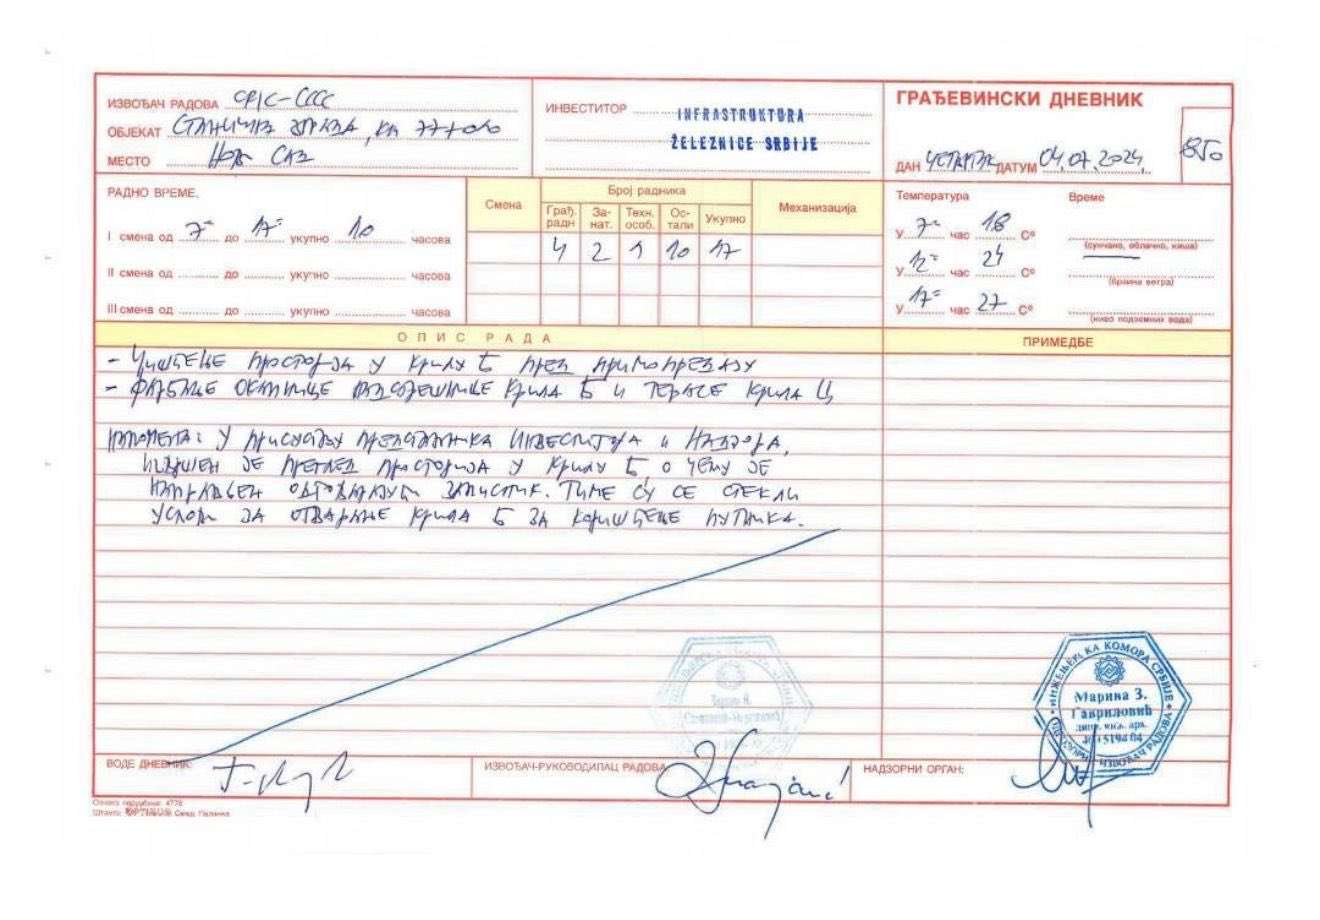 ИЗВОЂАЧ РАДОВА CRIC-CCCC
ОБЈЕКАТ СТАНИЧНА ЗГРАДА, КМ 77+0
МЕСТО НОВИ САД
ИНВЕСТИТОР INFRASTRUKTURA
ŽELEZNICE SRBIJE
ГРАЂЕВИНСКИ ДНЕВНИК
850
ДАН ЧЕТВРТАК ДАТУМ 04.07.2024.
РАДНО ВРЕМЕ.
I смена од 7 до 17 укупно 10 часова
II смена од до укупно часова
III смена од до укупно часова
Смена
Број радника
Грађ. радн
За-нат.
Техн. особ.
Ос-тали
Укупно
Механизација
4 2 1 10 17
Температура Време
У 7 час 18 С°
(сунчано, облачно, киша)
У 12 час 24 С°
(брзина ветра)
У 17 час 27 С°
(ниво подземних вода)
ОПИС РАДА
ПРИМЕДБЕ
- ЧИШЋЕЊЕ ПРОСТОРИЈА У КРИЛУ Б ПРЕД ПРИМОПРЕДАЈУ
- ФАРБАЊЕ ОКАПНИЦЕ НАДСТРЕШНИЦЕ КРИЛА Б И ТЕРАСЕ КРИЛА Ц
НАПОМЕНА: У ПРИСУСТВУ ПРЕДСТАВНИКА ИНВЕСТИТОРА И НАДЗОРА,
ИЗВРШЕН ЈЕ ПРЕГЛЕД ПРОСТОРИЈА У КРИЛУ Б О ЧЕМУ ЈЕ
НАПРАВЉЕН ОДГОВАРАЈУЋИ ЗАПИСНИК. ТИМЕ СУ СЕ СТЕКЛИ
УСЛОВИ ЗА ОТВАРАЊЕ КРИЛА Б ЗА КОРИШЋЕЊЕ ПУТНИКА.
ИНЖЕЊЕРСКА КОМОРА СРБИЈЕ
Марина З.
Гавриловић
дипл. инж. арх.
ОДГОВОРНИ ИЗВОЂАЧ РАДОВА
ВОДЕ ДНЕВНИК:
ИЗВОЂАЧ-РУКОВОДИЛАЦ РАДОВА
НАДЗОРНИ ОРГАН:
Ознака наруџбине: 4776